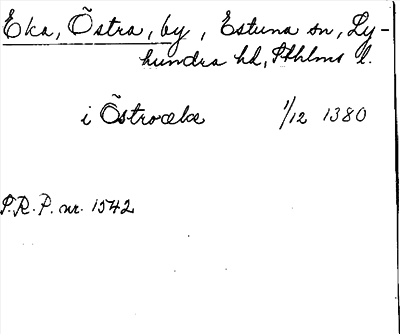 Eka, Östra, by, Estuna sn, Ly-
hundra hd, Sthlms l.
i Östroæka 1/12 1380
P.R.P. nr. 1542